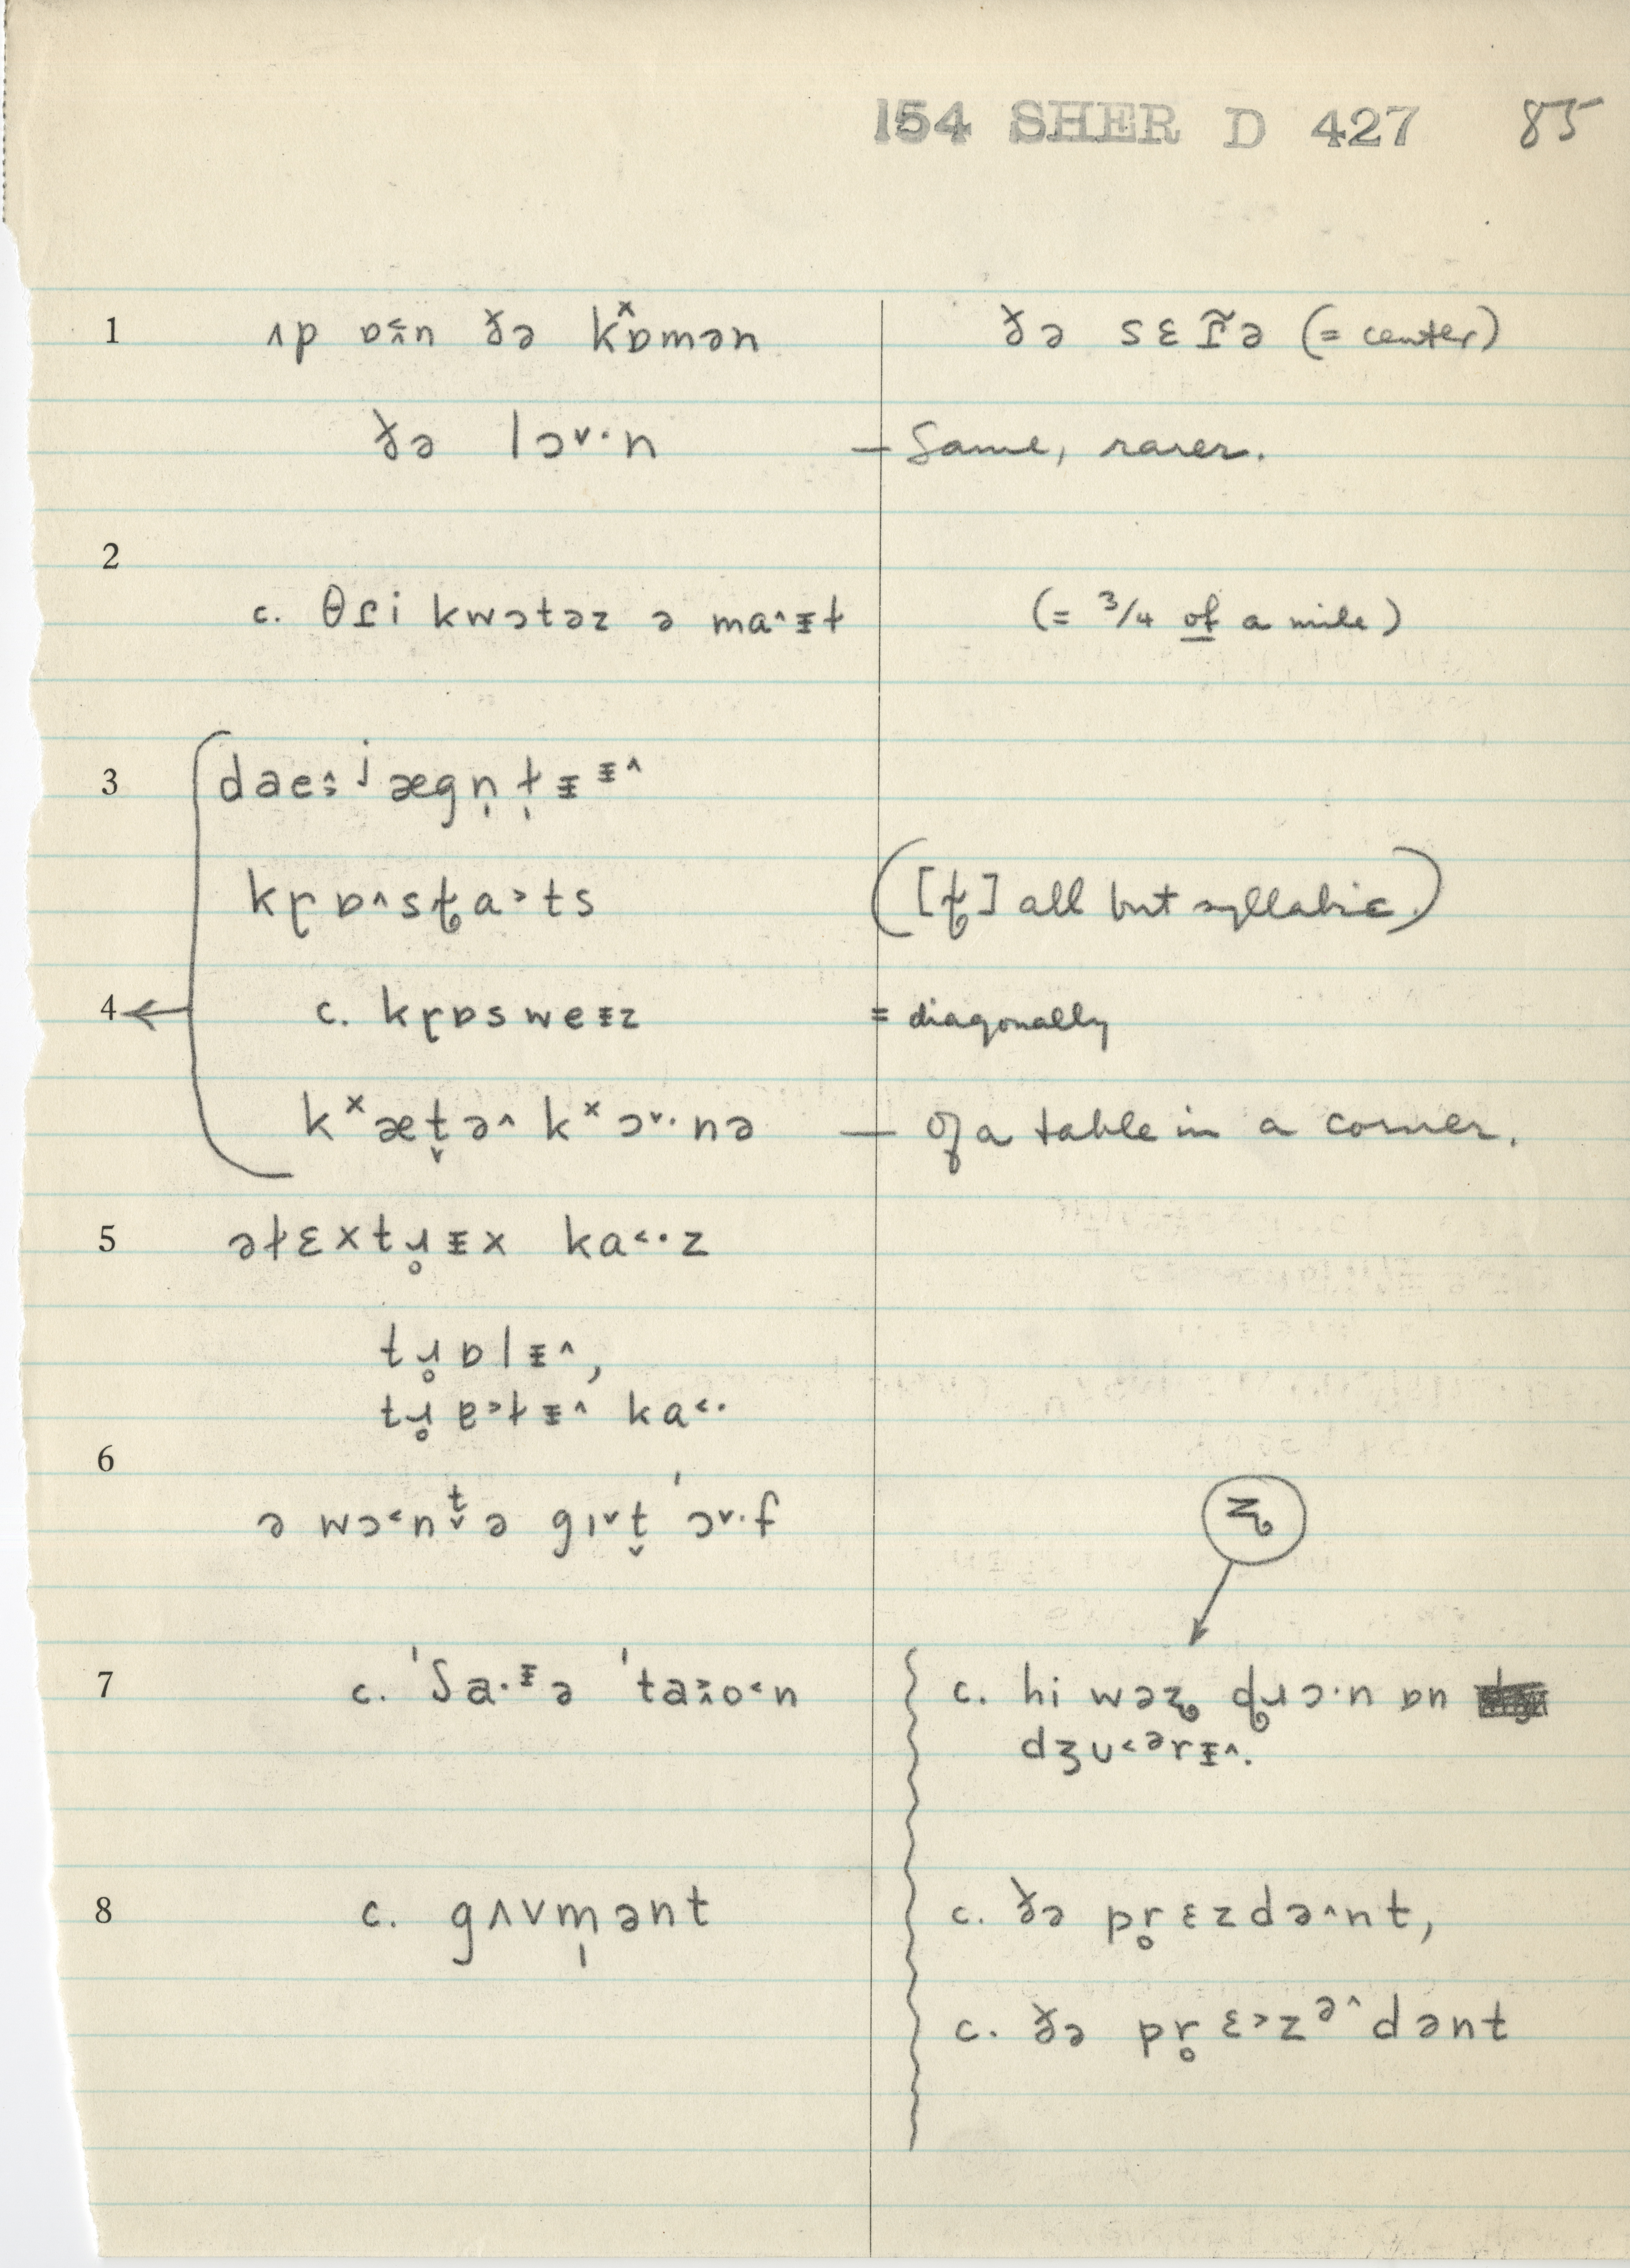 154 SHER D 427 85
1 ʌp ɒ̈n ɣ̌ə kˣɒmən ɣ̌ə sɛɾ̃ə (= center)
ɣ̌ə lɔ˅·n — Same, rarer.
2
c. θɾi kwɔtəz ə ma^ɪɫ (= 3/4 of a mile)
3
kɽɒ^sɫa˃ts ([ɫ] all but syllabic.)
4 ← c. kɽɒsweɪz = diagonally
kˣæt̬ə^ kˣɔ˅·nə — Of a table in a corner.
5 əɫɛxtɹ̥ɪx ka˂·z
tɹ̥ɒlɪ^,
tɹ̥ɐ˃ɫɪ^ ka˂·
6
ə wɔ˂nt̬ə gɪ˅t̬ 'ɔ˅·f
7 c. 'ʃa·ɪə 'taɪo˂n c. hi wəʐ ɖɹɔ·n ɒn
dʒu˂ərɪ^.
8 c. gʌvm̩ənt c. ɣ̌ə pr̥ɛzdə^nt,
c. ɣ̌ə pr̥ɛ˃zə^dənt